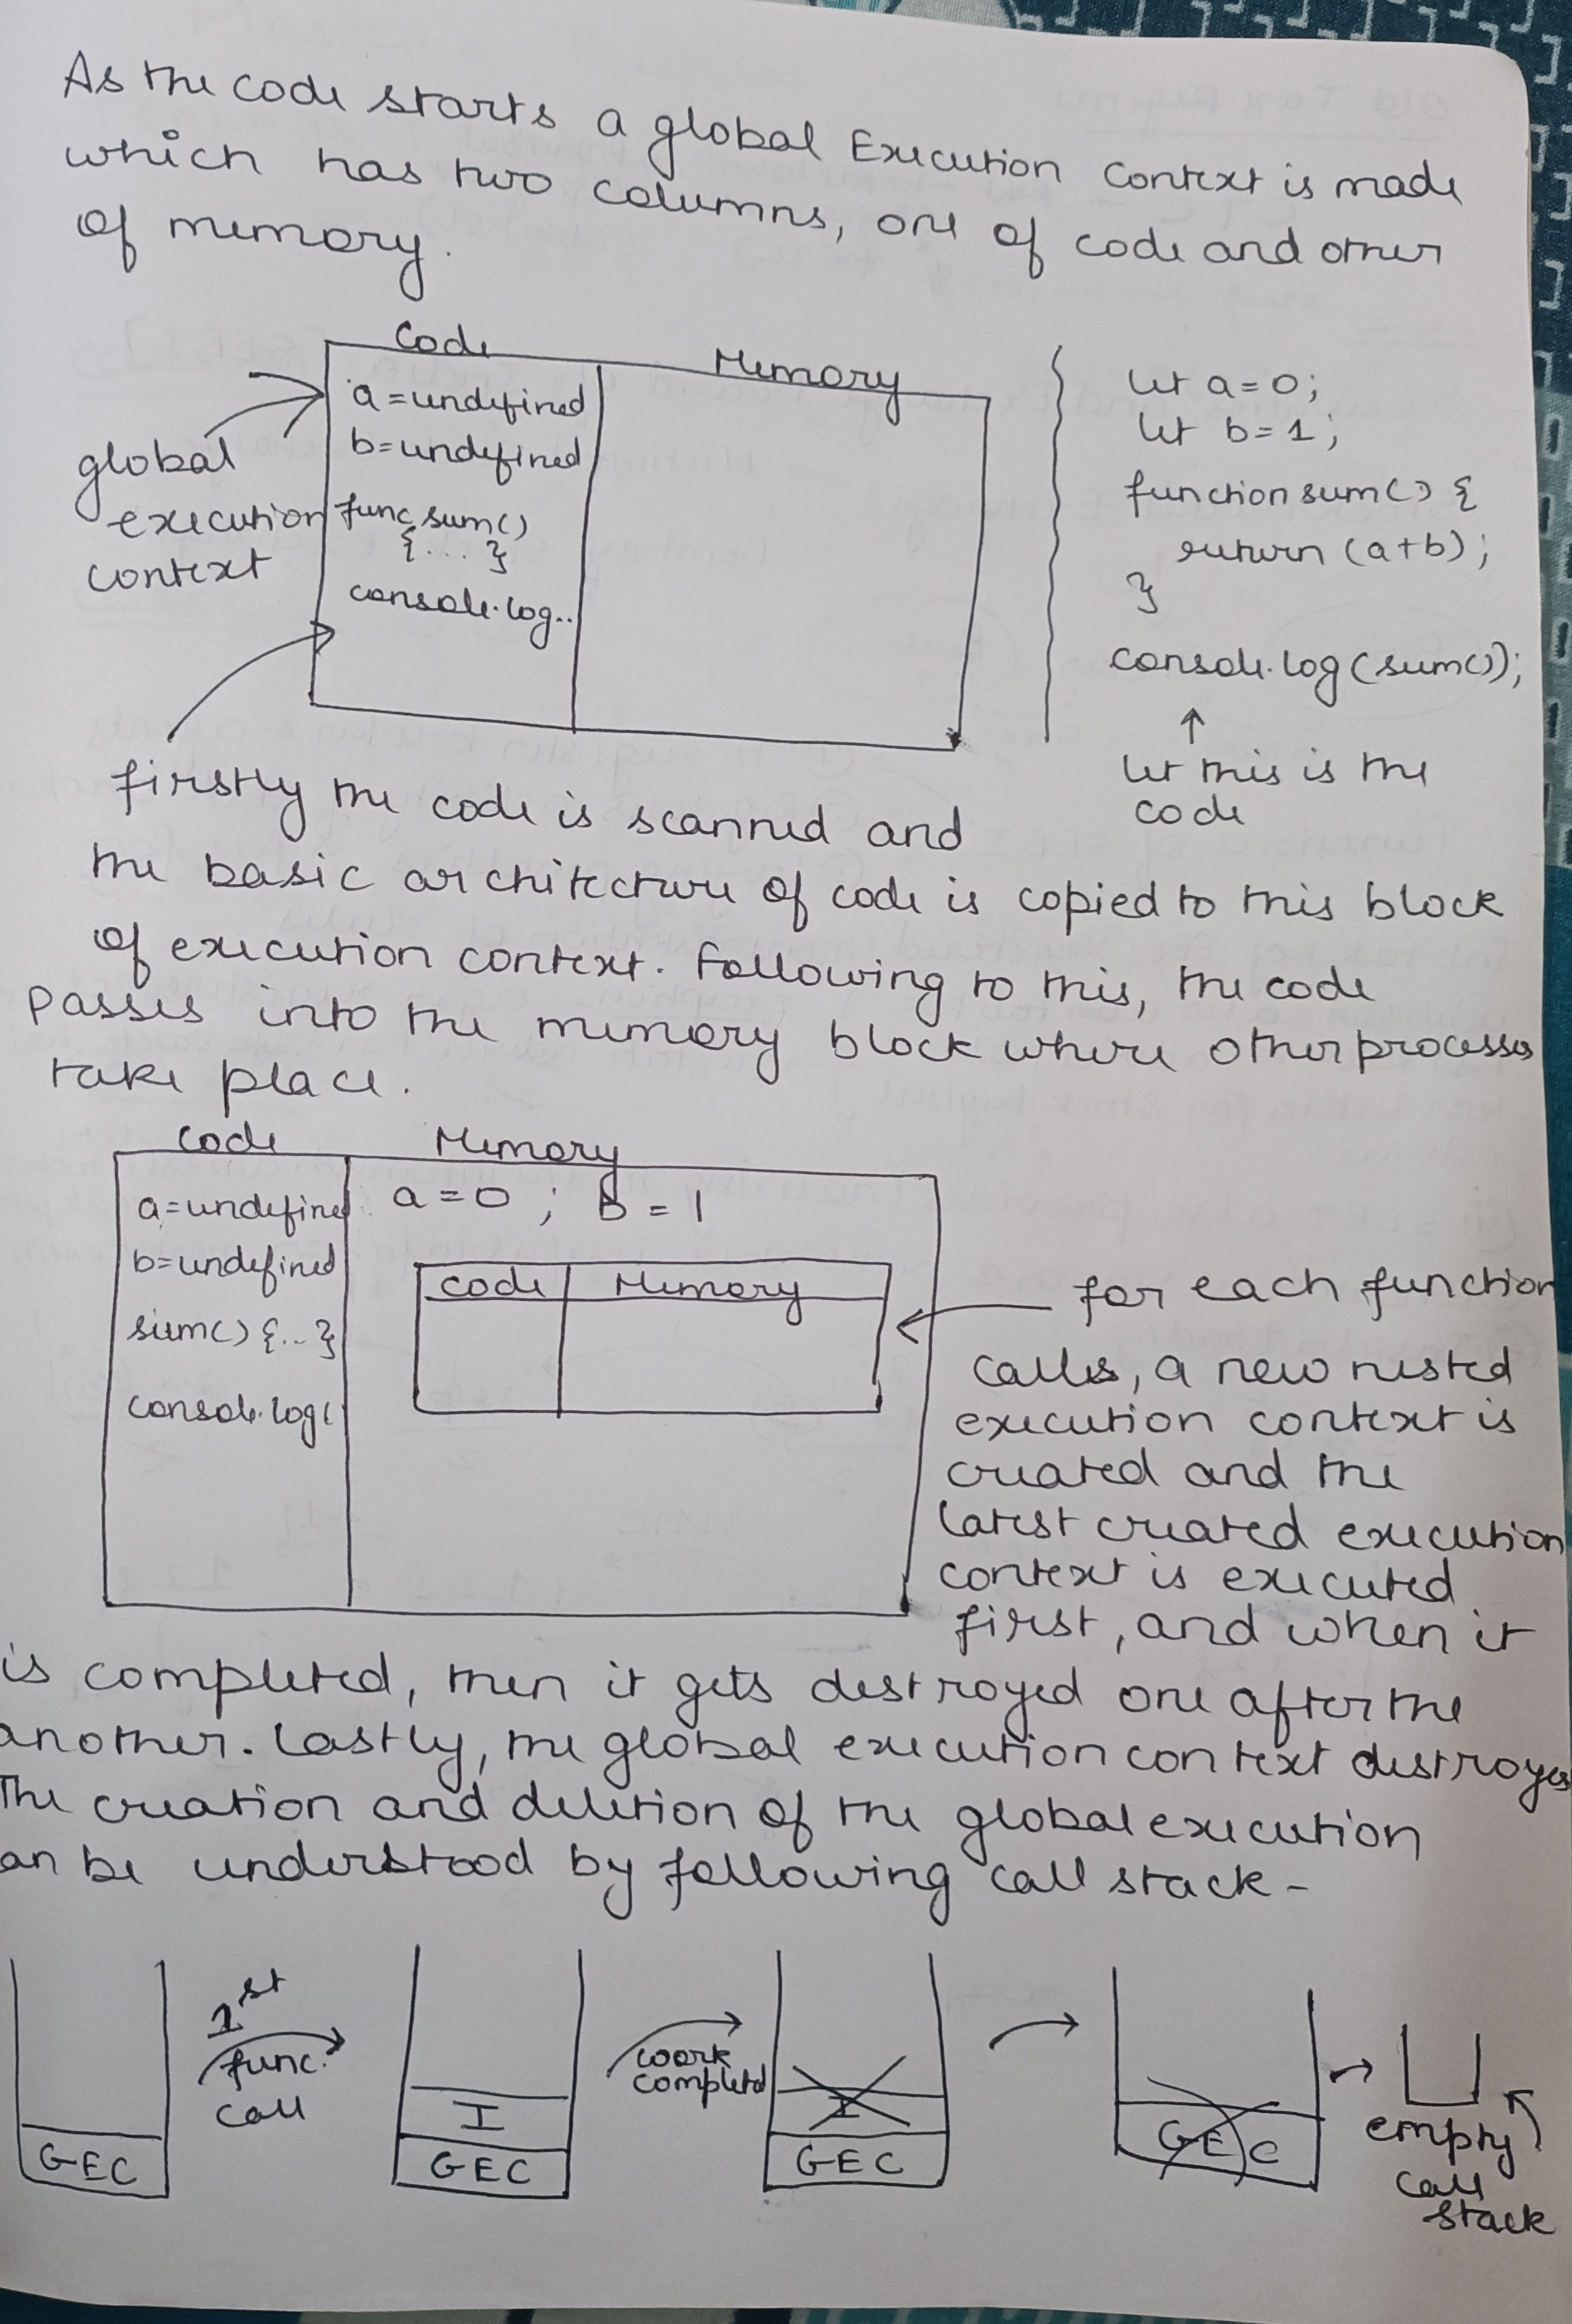 As the code starts a global Execution Context is made
which has two columns, one of code and other
of memory.
Code
Memory
a=undefined
b=undefined
func sum()
{....}
console.log..
global
execution
context
let a=0;
let b=1;
function sum() {
return (a+b);
}
console.log(sum());
↑
let this is the
code
firstly the code is scanned and
the basic architecture of code is copied to this block
of execution context. Following to this, the code
passes into the memory block where other processes
take place.
Code
Memory
a=undefined
b=undefined
sum() {...}
console.log(
a=0 ; B=1
code
Memory
for each function
calls, a new nested
execution context is
created and the
latest created execution
context is executed
first, and when it
is completed, then it gets destroyed one after the
another. Lastly, the global execution context destroyes
The creation and deletion of the global execution
an be understood by following call stack-
GEC
1st
func.
call
I
GEC
work
completed
I
GEC
GEC
empty
call
stack